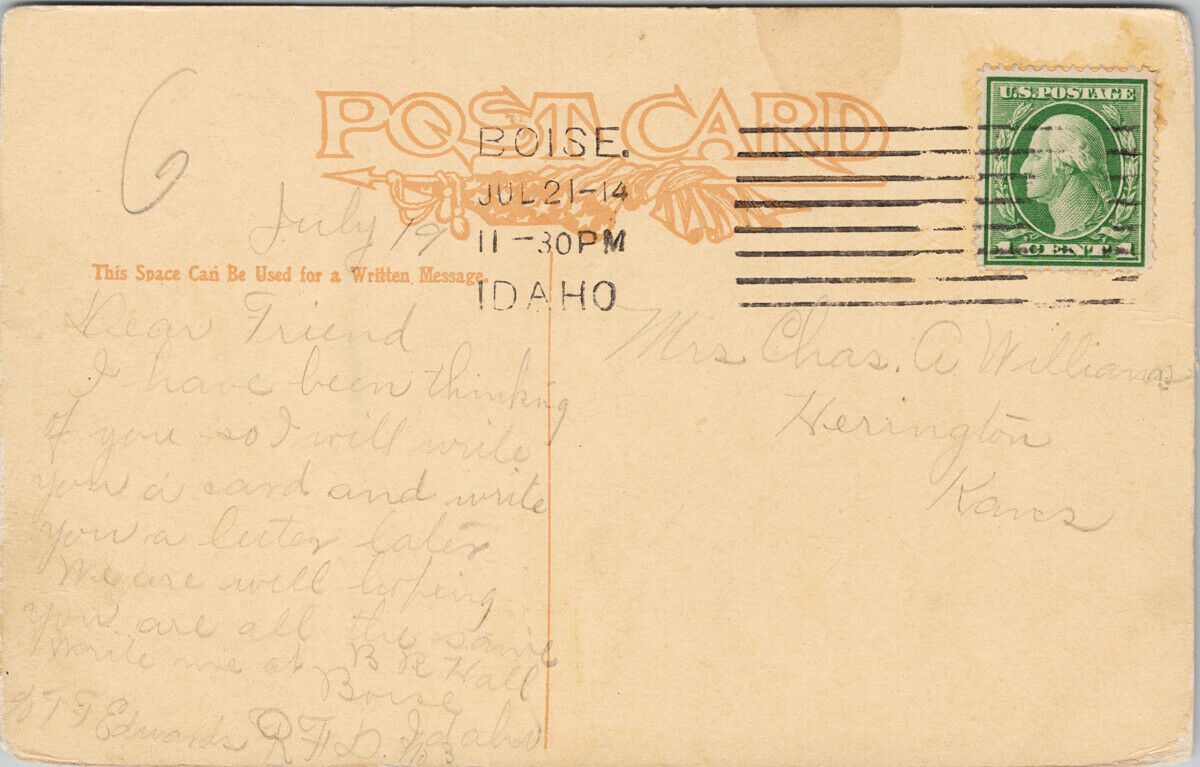 POST CARD
U.S. POSTAGE
1 CENT 1
BOISE.
JUL 21-14
11-30PM
IDAHO
6
July 19
This Space Can Be Used for a Written Message.
Dear Friend
I have been thinking
of you so I will write
you a card and write
you a letter later
We are well hoping
you are all the same
Write me at B R Hall
Boise
Idaho
Edwards R F D. No 3
Mrs Chas. A Williams
Herington
Kans